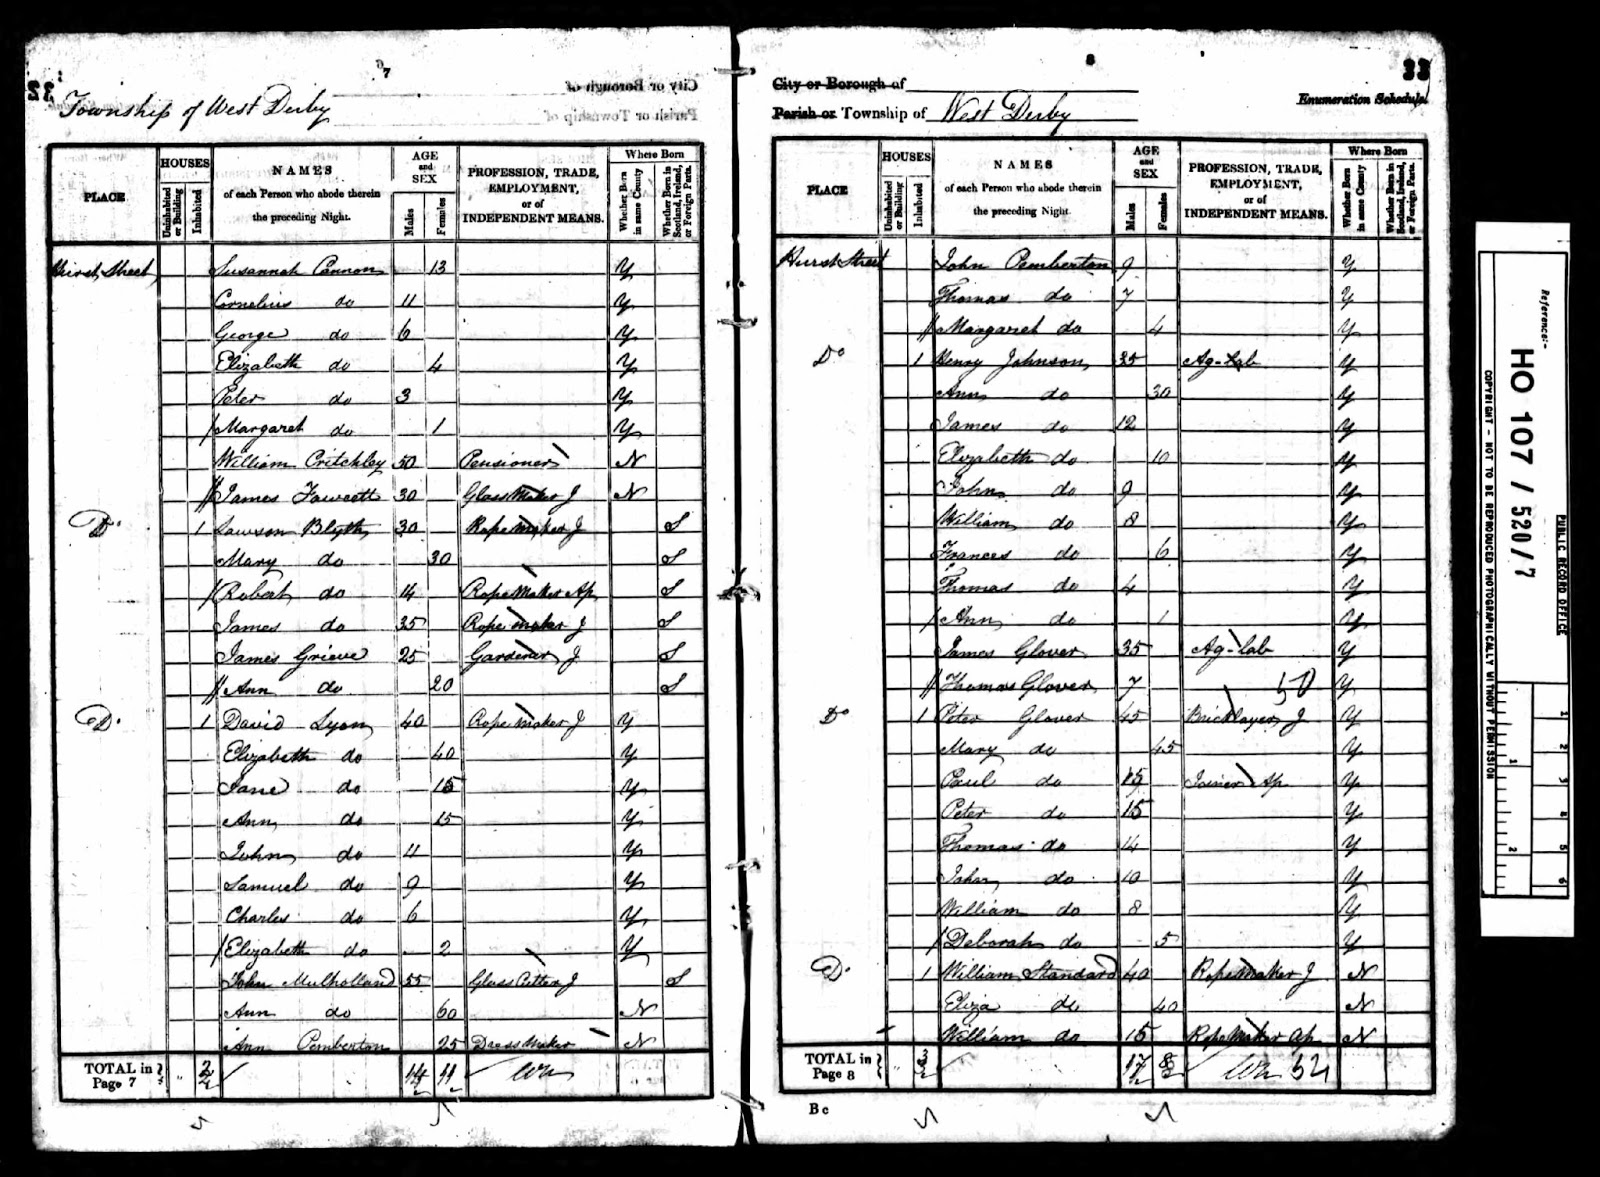 7
Township of West Derby
City or Borough of
Parish or Township of
PLACE
HOUSES
Uninhabited or Building
Inhabited
NAMES
of each Person who abode therein
the preceding Night.
AGE and SEX
Males
Females
PROFESSION, TRADE,
EMPLOYMENT,
or of
INDEPENDENT MEANS.
Where Born
Whether Born in same County
Whether Born in Scotland, Ireland, or Foreign Parts.
Hurst Street Susannah Cannon 13 Y
Cornelius do 11 Y
George do 6 Y
Elizabeth do 4 Y
Peter do 3 Y
/ Margaret do 1 Y
William Critchley 50 Pensioner N
// James Fawcett 30 Glass Maker J N
Do 1 Lawson Blyth 30 Rope maker J S
Mary do 30 S
/ Robert do 14 Rope Maker Ap S
James do 35 Rope maker J S
James Grieve 25 Gardener J S
// Ann do 20 S
Do 1 David Lyon 40 Rope maker J Y
Elizabeth do 40 Y
Jane do 15 Y
Ann do 15 Y
John do 11 Y
Samuel do 9 Y
Charles do 6 Y
/ Elizabeth do 2 Y
John Mulholland 55 Glass Cutter J S
Ann do 60 N
Ann Pemberton 25 Dress Maker N
TOTAL in Page 7 2 14 11
8
33
City or Borough of
Enumeration Schedule.
Parish or Township of West Derby
PLACE
HOUSES
Uninhabited or Building
Inhabited
NAMES
of each Person who abode therein
the preceding Night.
AGE and SEX
Males
Females
PROFESSION, TRADE,
EMPLOYMENT,
or of
INDEPENDENT MEANS.
Where Born
Whether Born in same County
Whether Born in Scotland, Ireland, or Foreign Parts.
Hurst Street John Pemberton 9 Y
Thomas do 7 Y
// Margaret do 4 Y
Do 1 Henry Johnson 35 Ag-Lab Y
Ann do 30 Y
James do 12 Y
Elizabeth do 10 Y
John do 9 Y
William do 8 Y
Frances do 6 Y
Thomas do 4 Y
/ Ann do 1 Y
James Glover 35 Ag-Lab Y
// Thomas Glover 7 50 Y
Do 1 Peter Glover 45 Bricklayer J Y
Mary do 45 Y
Paul do 15 Joiner Ap Y
Peter do 15 Y
Thomas do 14 Y
John do 10 Y
William do 8 Y
/ Deborah do 5 Y
Do 1 William Standard 40 Ropemaker J N
Eliza do 40 N
William do 15 Rope Maker Ap N
TOTAL in Page 8 3 17 8 52
B c
Reference:-
HO 107 / 520/7
PUBLIC RECORD OFFICE
COPYRIGHT - NOT TO BE REPRODUCED PHOTOGRAPHICALLY WITHOUT PERMISSION